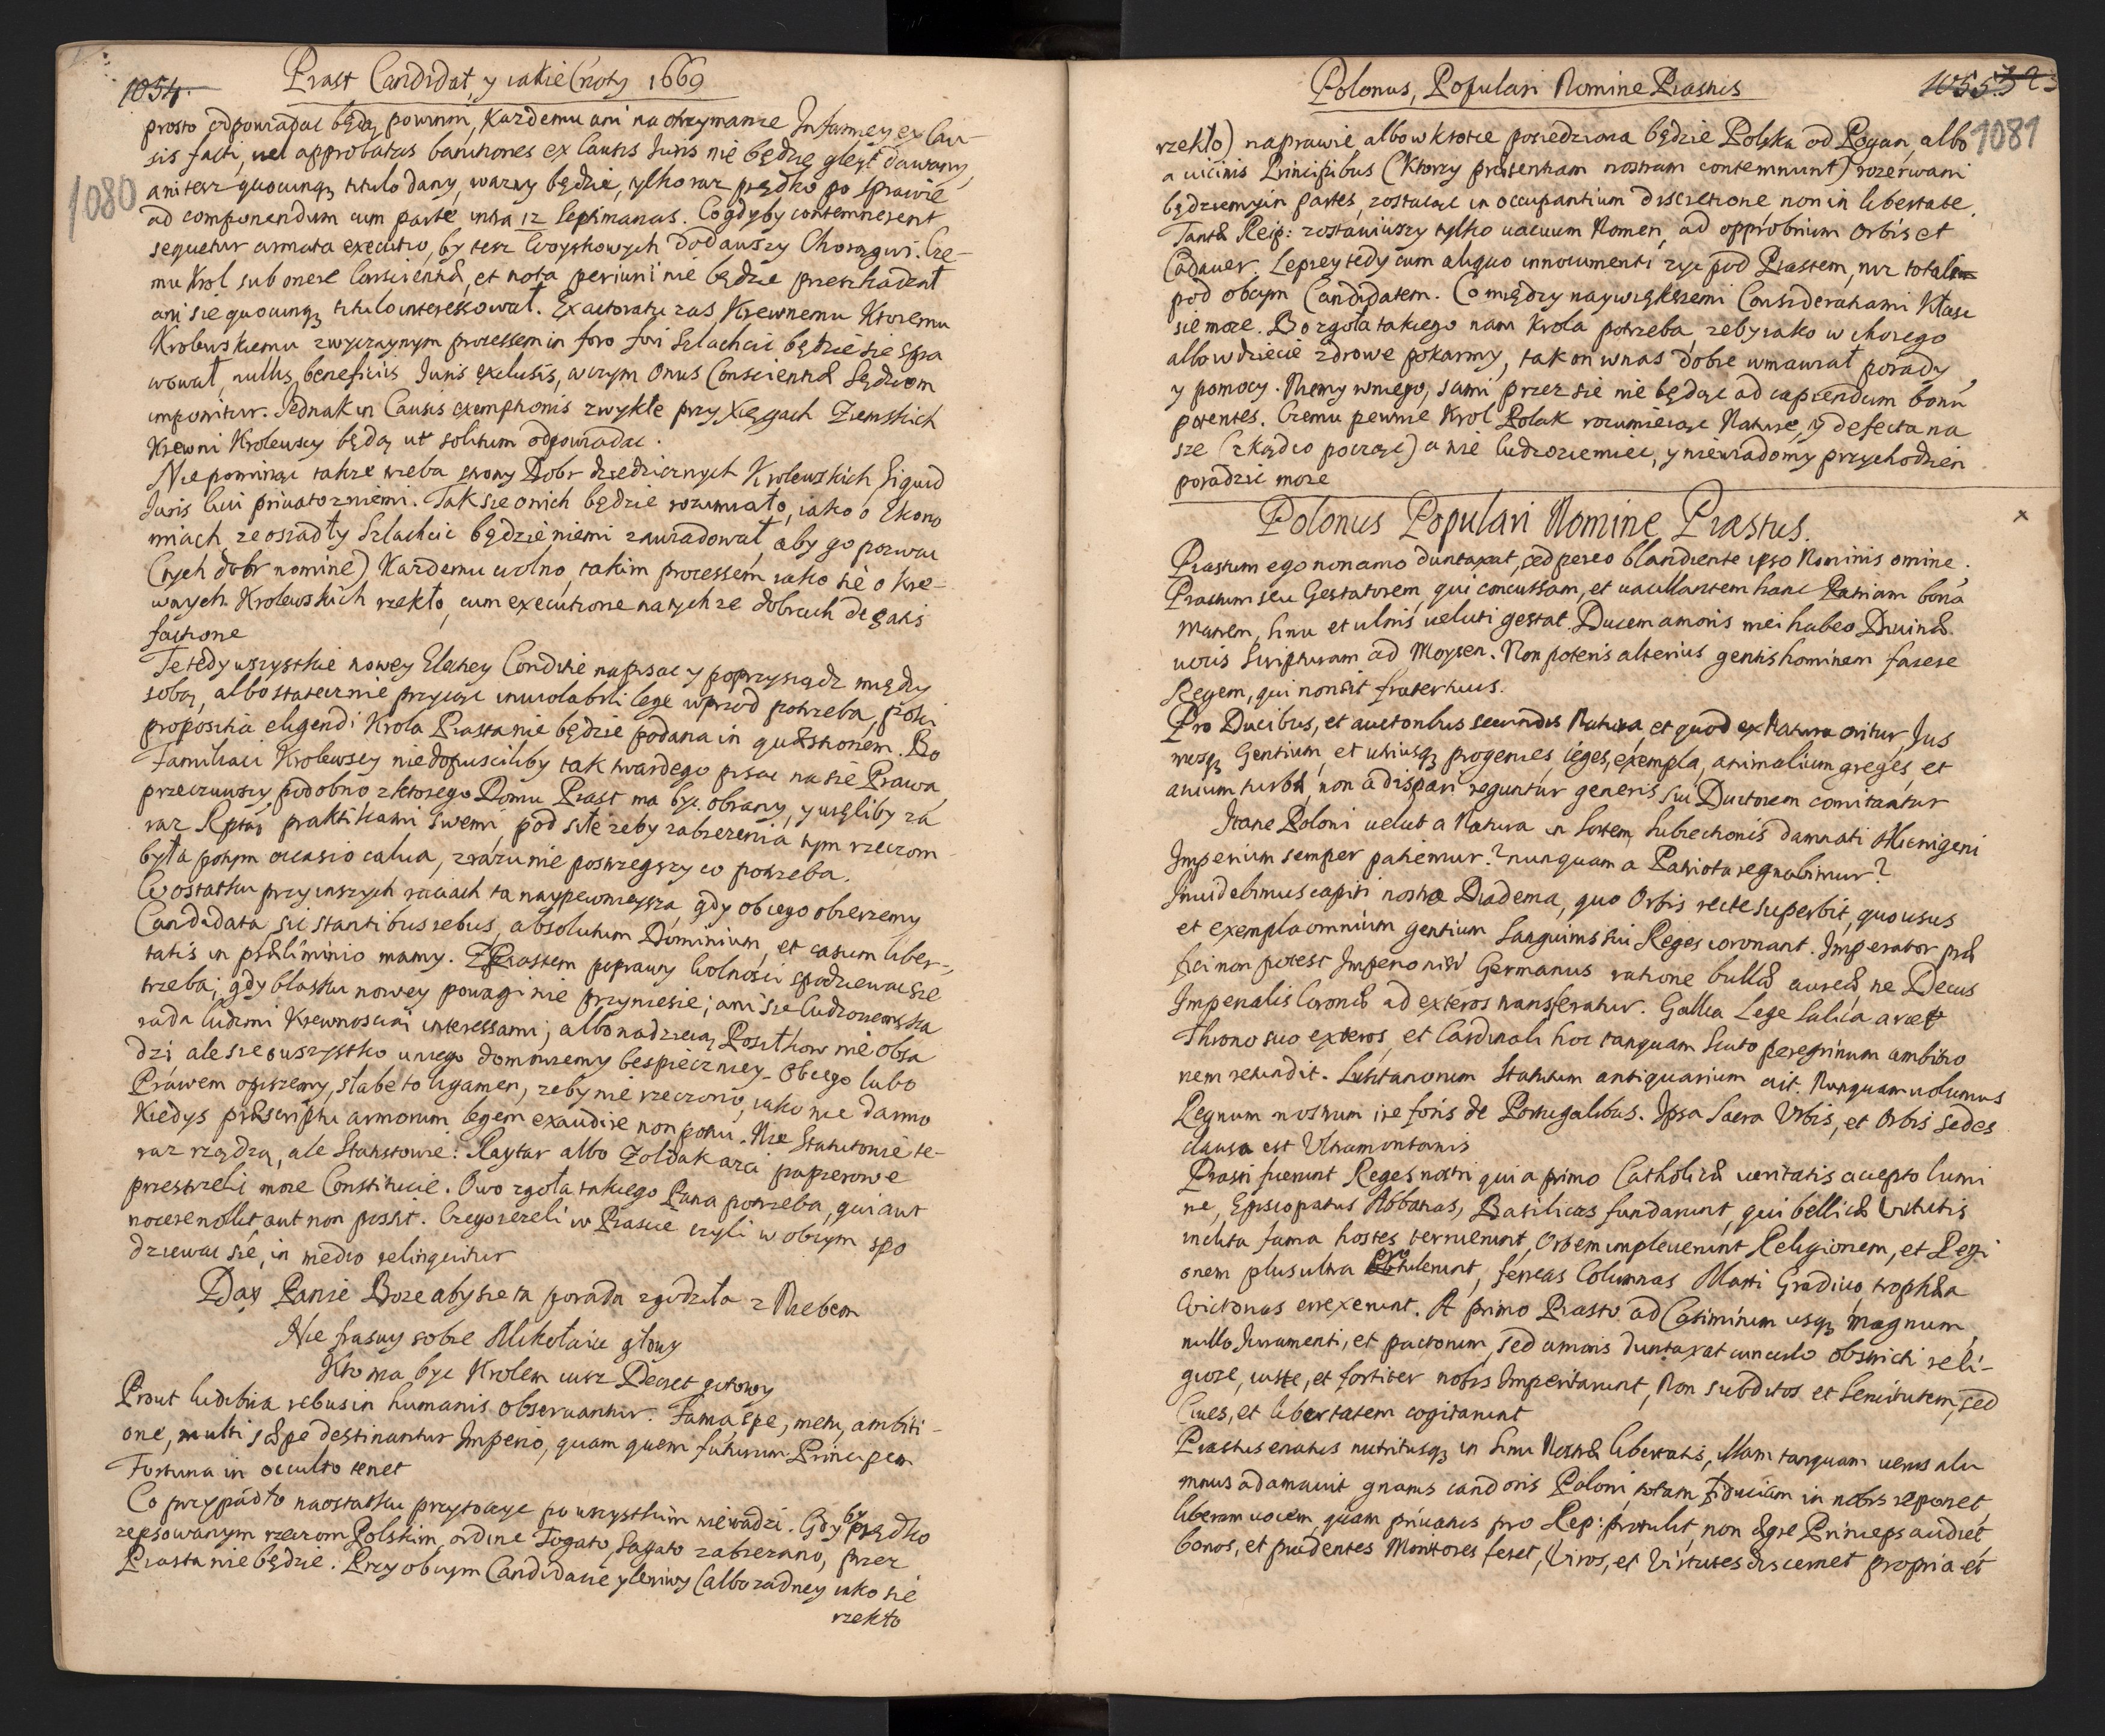 1054.
Piast Candidat, y iakie Cnoty 1669
1080
prosto odpowiadac będą powinni, Kazdemu ani na otrzymanie Infamiey ex Cau-
sis facti, vel approbatas banitiones ex Causis Iuris nie będzie gleyt dawany,
ani tesz quocunqꝫ titulo dany, wazny będzie, tylko raz prędko po sprawie
ad componendum cum parte intra 12 Septimanas. Co gdyby contemnerent
sequetur armata executio, by tesz Woyskowych dodawszy Chorągwi. Cze-
mu Krol sub onere Conscientiæ, et nota periurii nie będzie przeszkadzał
ani sie quocunqꝫ titulo interessował. Exactoratu zas, Krewnemu Ktoremu
Krolewskiemu zwyczaynym processem in foro fori Szlachcic będzie sie spra
wował, nullis, beneficiis Iuris exclusis, w czym Onus Conscientiæ Sędziom
imponitur. Jednak in Causis exemptionis zwykłe przy Xięgach Ziemskich
Krewni Krolewscy będą ut solitum odpowiadac.
Nie pominąc takze trzeba strony Dobr dziedzicznych Krolewskich Siquid
Iuris Cui privato z niemi. Tak sie o nich będzie rozumiało, iako o Ekono
miach ze osiadły Szlachcic będzie niemi zawiadował, aby go pozwac
(tych dobr nomine) Kazdemu wolno, takim processem iako sie o kre-
wnych Krolewskich rzekło, cum executione na tychze dobrach de satis
factione
Te tedy wszystkie nowey Elekcyey Conditie napisac y poprzysiądz między
sobą, albo statecznie przyiąc inviolabili lege wprzod potrzeba, poki
propositia eligendi Krola Piasta nie będzie podana in quæstionem. Bo
Familiaci Krolewscy niedopusciliby tak twardego pisac na sie Prawa,
przeczuwszy podobno z ktorego Domu Piast ma byc obrany, y wzięliby za
raz Rptą praktikami swemi, pod siłe zeby zabiezenia tym rzeczom
była potym occasio calva, zrazu nie postrzegszy co potrzeba.
Wostatku przy inszych raciach ta naypewnieysza, gdy obcego obierzemy
Candidata, sic stantibus rebus, absolutum Dominium, et casum liber-
tatis in præliminio mamy. Z Piastem poprawy Wolnosci spodziewac sie
trzeba; gdy blasku nowey powagi nie przyniesie; ani sie Cudzoziemska
rada ludzmi Krewnosciai interessami; albo nadzieią Positkow nie obsa
dzi ale sie o wszystko u niego domowiemy bespieczniey. Obcego lubo
Prawem opiszemy, słabe to ligamen, zeby nie rzeczono, iako nie dawno
Kiedys præscripti armorum legem exaudire non potui. Nie Statutowie te-
raz rządzą, ale Statistowie: Raytar albo Zołdak azci papierowe
przestrzeli moze Constitucie. Owo zgoła takiego Pana potrzeba, qui aut
nocere nollet aut non possit. Czego iezeli w Piascie czyli w obcym spo
dziewac sie, in medio relinquitur
Day Panie Boze aby sie ta porada zgodziła z Niebem
Nie frasuy sobie Mikołaiu głowy
Kto ma byc Krolem iusz Decret gotowy
Prout ludibria rebus in humanis observantur. Fama, spe, metu, ambiti-
one, multi sæpe destinantur Imperio, quam quem futurum Principem
Fortuna in occulto tenet
Co przypadło naostatku przytoczyc po wszystkim niewadzi. Gdyby prędko
zepsowanym rzeczom Polskim, ordine Togato, Sagato zabiezano, przez
Piasta nie będzie. Przy obcym Candidacie y leniwy (albo zadney iako sie
rzekło
Polonus, Populari Nomine Piastus
1055
1081
rzekło) naprawie albo w krotce posiedziona będzie Polska od Pogan, albo
a vicinis Principibus (Ktorzy præsentiam nostram contemnunt) rozerwani
będziemy in partes, zostaiąc in occupantium discretione non in libertate,
Tantæ Reip: zostawiwszy tylko vacuum Nomen, ad opprobrium Orbis et
Cadaver. Lepiey tedy cum aliquo innocumenti zyc pod Piastem, niz totali
pod obcym Candidatem. Co między naywiększemi Considerationami Kłasc
sie moze. Bo zgoła takiego nam Krola potrzeba, zeby iako w chorego
albo w dziecie zdrowe pokarmy, tak on w nas dobre wmawiał porady,
y pomocy. Niemy w niego, sami przez sie nie będąc ad capiendum bonu
potentes. Czemu pewnie Krol Polak rozumieiąc Nature, y defecta na
sze (zkądco począc) a nie Cudzoziemiec, y niewiadomy przychodzien
poradzic moze
Polonus Populari Nomine Piastus.
Piastum ego non amo duntaxat, sed pereo blandiente ipso Nominis omine.
Piastum seu Gestatorem, qui concussam, et vacillantem hanc Patriam bona
Matrem, sinu et ulnis veluti gestat. Ducem amoris mei habeo Divinæ
vocis Scripturam ad Moysen. Non poteris alterius gentis hominem facere
Regem, qui non sit frater tuus.
Pro Ducibus, et auctoribus secundis Natura, et quod ex Natura oritur, Ius
mosqꝫ Gentium, et utriusqꝫ progenies, leges, exempla, animalium greges, et
avium turbæ, non a dispari reguntur generis sui Ductorem comitantur
Itane Poloni velut a Natura in Sortem Subiectionis damnati Alienigeni
Imperium semper patiemur? nunquam a Patriota regnabimur?
Invidebimus capiti nostro Diadema, quo Orbis recte superbit, quo usus
et exempla omnium gentium Sanguinis sui Reges coronant. Imperator præ
fici non potest Imperio nisi Germanus ratione bullæ aureæ, ne Decus
Imperialis Coronæ ad exteros transferatur. Gallia Lege Salica arcet
Throno suo exteros, et Cardinali hoc tanquam Scuto peregrinum ambitio
nem retundit. Lusitanorum Statutum antiquarium ait. Nunquam volumus
Regnum nostrum ire foris de Portugalibus. Ipsa Sacra Urbis, et Orbis sedes
clausa est Ultramontanis
Piasti fuerunt Reges nostri qui a primo Catholicæ veritatis accepto lumi
ne, Episcopatus Abbatias, Basilicas fundarunt, qui bellicæ Virtutis
inclita fama hostes terruerunt, Orbem impleverunt Religionem, et Regi
onem plus ultra protulerunt, ferreas Columnas Marti Gradivo, trophæa
Victorias errexerunt. A primo Piasto ad Casimirum usqꝫ Magnum,
nullo Iuramenti, et pactorum, sed amoris duntaxat vinculo obstricti reli-
giose, iuste, et fortiter nobis Imperitarunt, Non subditos et Servitutem, sed
Cives, et libertatem cogitarunt
Piastus enatus nutritusqꝫ in Sinu Nostræ libertatis, illam tanquam verus alu
mnus adamavit gnarus candoris Poloni, totam fiduciam in nobis reponet,
liberam vocem, quam privatus pro Rep: protulit, non ægre Princeps audiet
bonos, et prudentes Monitores feret, Viros, et Virtutes discernet propria et